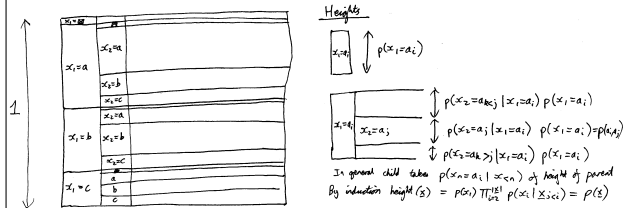 1
x₁=
x₁=a
x₂=a
x₂=b
x₂=c
x₁=b
x₂=a
x₂=b
x₂=c
x₁=c
a
b
c
Heights
x₁=aᵢ
p(x₁=aᵢ)
x₁=aᵢ
x₂=aⱼ
p(x₂=aₖ<ⱼ | x₁=aᵢ) p(x₁=aᵢ)
p(x₂=aⱼ | x₁=aᵢ) p(x₁=aᵢ)=p(aᵢaⱼ)
p(x₂=aₖ>ⱼ | x₁=aᵢ) p(x₁=aᵢ)
In general child takes p(xₙ=aᵢ | x<ₙ) of height of parent
By induction height(x) = p(x₁) ∏ᵢ₌₂^|x| p(xᵢ | xⱼ<ᵢ) = p(x)